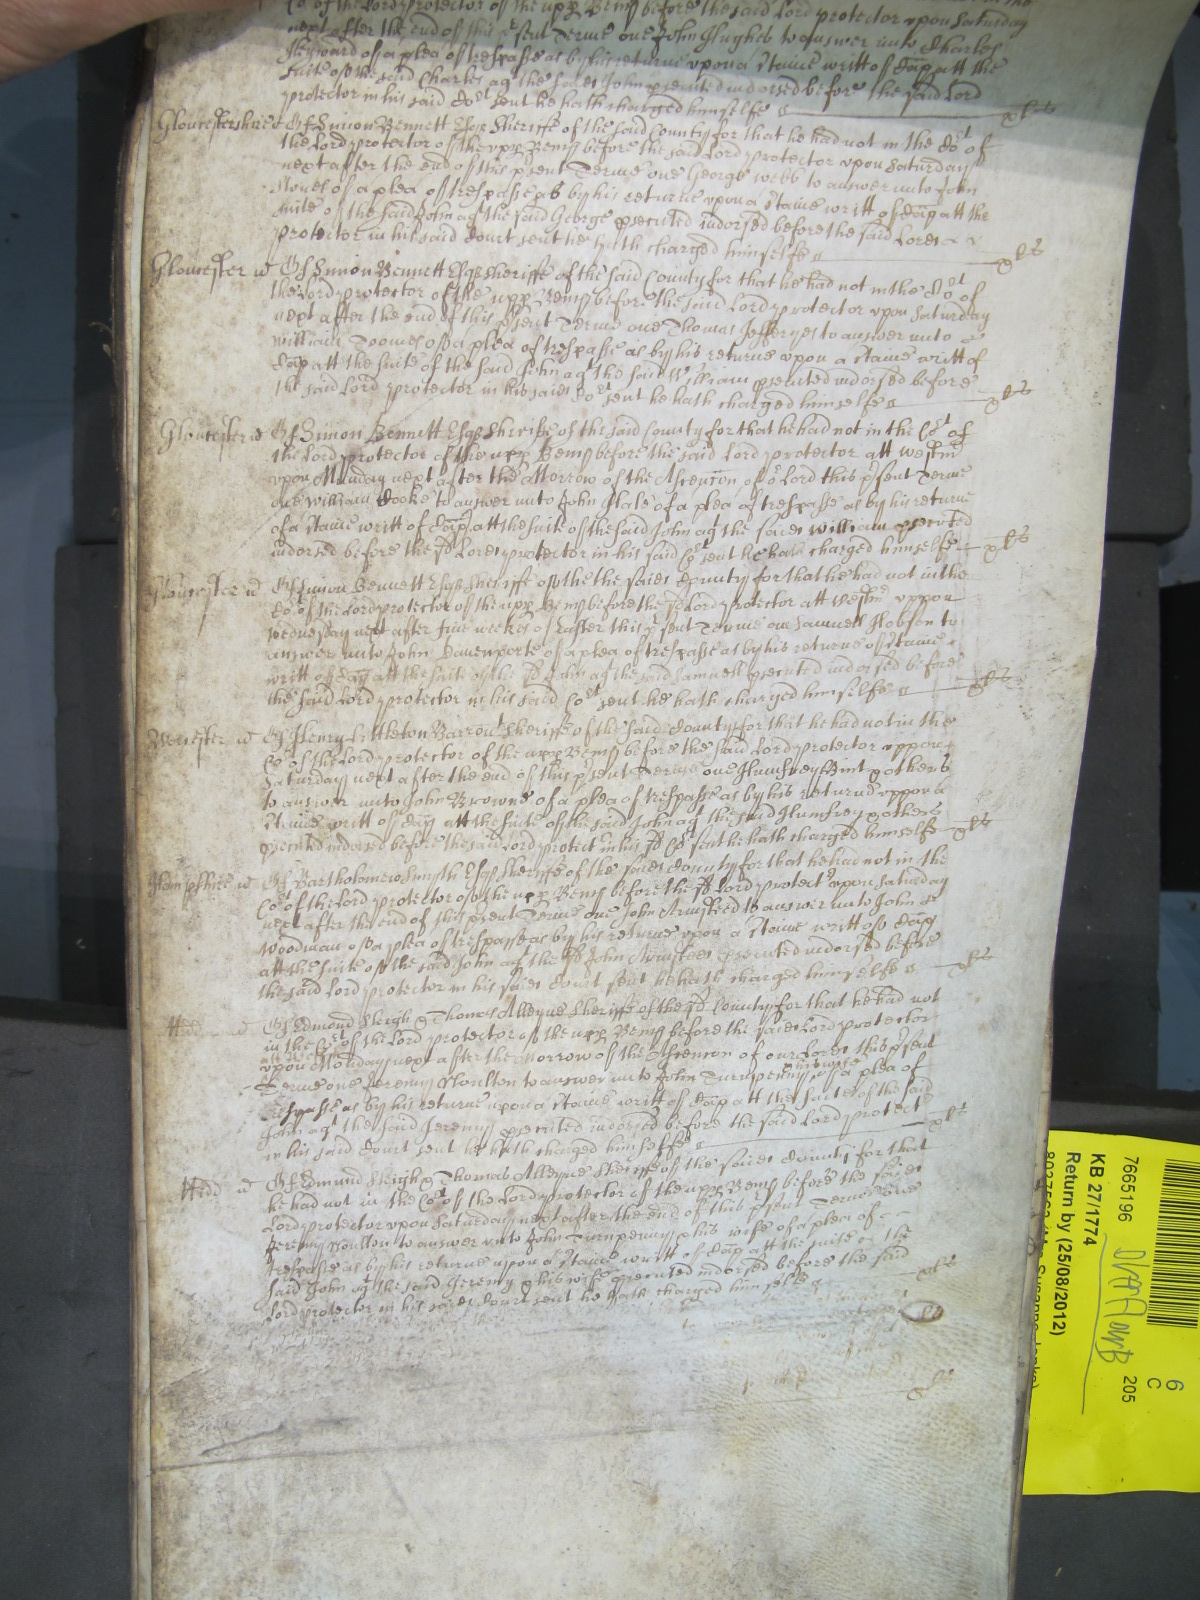 Co͞t of the Lord protector of the upp Bench before the said Lord protector upon Saturday
next after the end of this p̱sent Terme one John Hughes to answer unto Charles
Heyward of a plea of trespasse as by his returne upon a Stams writt of Cap att the
suite of the said Charles agt the said John p̱secuted indorsed before the said Lord
protector in his said Cot sent he hath charged himselfe xls
Gloucestershire ss Of Simon Bennett Esqr Sheriffe of the said County for that he had not in the Cot of
the Lord protector of the upp Bench before the said Lord protector upon Saturday
next after the end of this p̱sent Terme one George Webb to answer unto John
Stones of a plea of trespasse as by his returne upon a Stams writt of Cap att the
suite of the said John agt the said George p̱secuted indorsed before the said Lord
protector in his said Court sent he hath charged himselfe xls
Gloucester ss Of Simon Bennett Esqr Sheriffe of the said County for that he had not in the Cot of
the Lord protector of the upp Bench before the said Lord protector upon Saturday
next after the end of this p̱sent Terme one Thomas Jefferyes to answer unto
William Toomes of a plea of trespasse as by his returne upon a Stams writt of
Cap att the suite of the said John agt the said William p̱secuted indorsed before
the said Lord protector in his said Cot sent he hath charged himselfe xls
Gloucester ss Of Simon Bennett Esqr Sheriffe of the said County for that he had not in the Cot of
the Lord protector of the upp Bench before the said Lord protector att Westm
upon Munday next after the Morrow of the Ascencon of or Lord this p̱sent Terme
one William Cooke to answer unto John Hale of a plea of trespasse as by his returne
of a Stams writt of Cap att the suite of the said John agt the said William p̱secuted
indorsed before the sd Lord protector in his said Cot sent he hath charged himselfe xls
Gloucester ss Of Simon Bennett Esqr Sheriffe of the the said County for that he had not in the
Cot of the Lord protector of the upp Bench before the sd Lord protector att Westm uppon
Wednesday next after five weekes of Easter this p̱sent Terme one Samuell Hobson to
answer unto John Davenporte of a plea of trespasse as by his returne of Stams
writt of Cap att the suite of the sd John agt the said Samuell p̱secuted indorsed before
the said Lord protector in his said Cot sent he hath charged himselfe xls
Worcester ss Of Henry Littleton Barront Sheriffe of the said County for that he had not in the
Cot of the Lord protector of the upp Bench before the said Lord protector uppon
Saturday next after the end of this p̱sent Terme one Humfrey Bint & others
to answer unto John Browne of a plea of trespasse as by his returne uppon a
Stams writt of Cap att the suite of the said John agt the said Humfrey & others
p̱secuted indorsed before the said Lord protect in his sd Cot sent he hath charged himselfe xls
Hampshire ss Of Bartholomew Smyth Esqr Sheriffe of the said County for that he had not in the
Cot of the Lord protector of the upp Bench before the sd Lord protectr upon Saturday
next after the end of this p̱sent Terme one John Armsteed to answer unto John
Woodman of a plea of trespasse as by his returne upon a Stams writt of Cap
att the suite of the said John agt the sd John Armsteed p̱secuted indorsed before
the said Lord protector in his said Court sent he hath charged himselfe xls
Midd ss Of Edmond Sleigh & Thomas Alleyne Sheriffe of the sd County for that he had not
in the Cot of the Lord protector of the upp Bench before the said Lord protector
upon Monday next after the Morrow of the Ascencon of our Lord this p̱sent
Terme one Jeremy Moulton to answer unto John Turnpenny & his wife of a plea of
trespasse as by his returne upon a Stams writt of Cap att the suite of the said
John agt the said Jeremy p̱secuted indorsed before the said Lord protect
in his said Court sent he hath charged himselfe xls
Midd ss Of Edmund Sleigh & Thomas Alleyne Sheriffe of the said County for that
he had not in the Cot of the Lord protector of the upp Bench before the said
Lord protector upon Saturday next after the end of this p̱sent Terme one
Jeremy Moulton to answer unto John Turnpenny & his wife of a plea of
trespasse as by his returne upon a Stams writt of Cap att the suite of the
said John agt the said Jeremy & his wife p̱secuted indorsed before the said
Lord protector in his said Court sent he hath charged himselfe xls
7665196
6
C
205
KB 27/1774
Return by (25/08/2012)